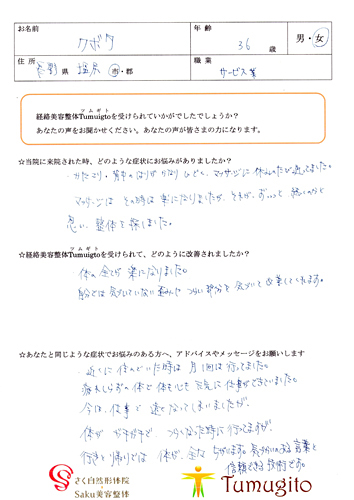 お名前 クボタ
年齢 36 歳
男・女
住所 長野 県 塩尻 市・郡
職業 サービス業
経絡美容整体Tumuigto(ツムギト)を受けられていかがでしたでしょうか?
あなたの声をお聞かせください。あなたの声が皆さまの力になります。
☆当院に来院された時、どのような症状にお悩みがありましたか?
・肩こり・背中のはりが ひどく、マッサージに
マッサージは その時は 楽になりましたが、それが、ずっと 続くのかと
思い、整体を探しました。
☆経絡美容整体Tumuigto(ツムギト)を受けられて、どのように改善されましたか?
体の全てが 楽になりました。
自分では 気づいていない 痛みや つらい部分を 気づいて 改善してくれます。
☆あなたと同じような症状でお悩みのある方へ、アドバイスやメッセージをお願いします
・近くに 住んでいた時は 月1回は行ってました。
疲れしらずの体で 体も心も 元気に 仕事ができていました。
今は、仕事で 遠くなってしまいましたが、
体が ガチガチで、つらくなった時に 行ってますが、
行きと帰りでは 体が、全然 ちがいます。 言葉と
信頼できる技術です。
さく自然形体院
Saku美容整体
Tumugito